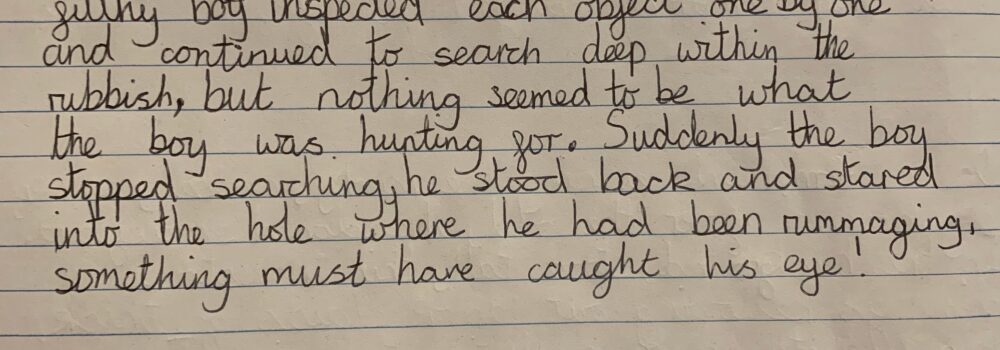 filthy boy inspected each object one by one
and continued to search deep within the
rubbish, but nothing seemed to be what
the boy was hunting for. Suddenly the boy
stopped searching, he stood back and stared
into the hole where he had been rummaging,
something must have caught his eye!